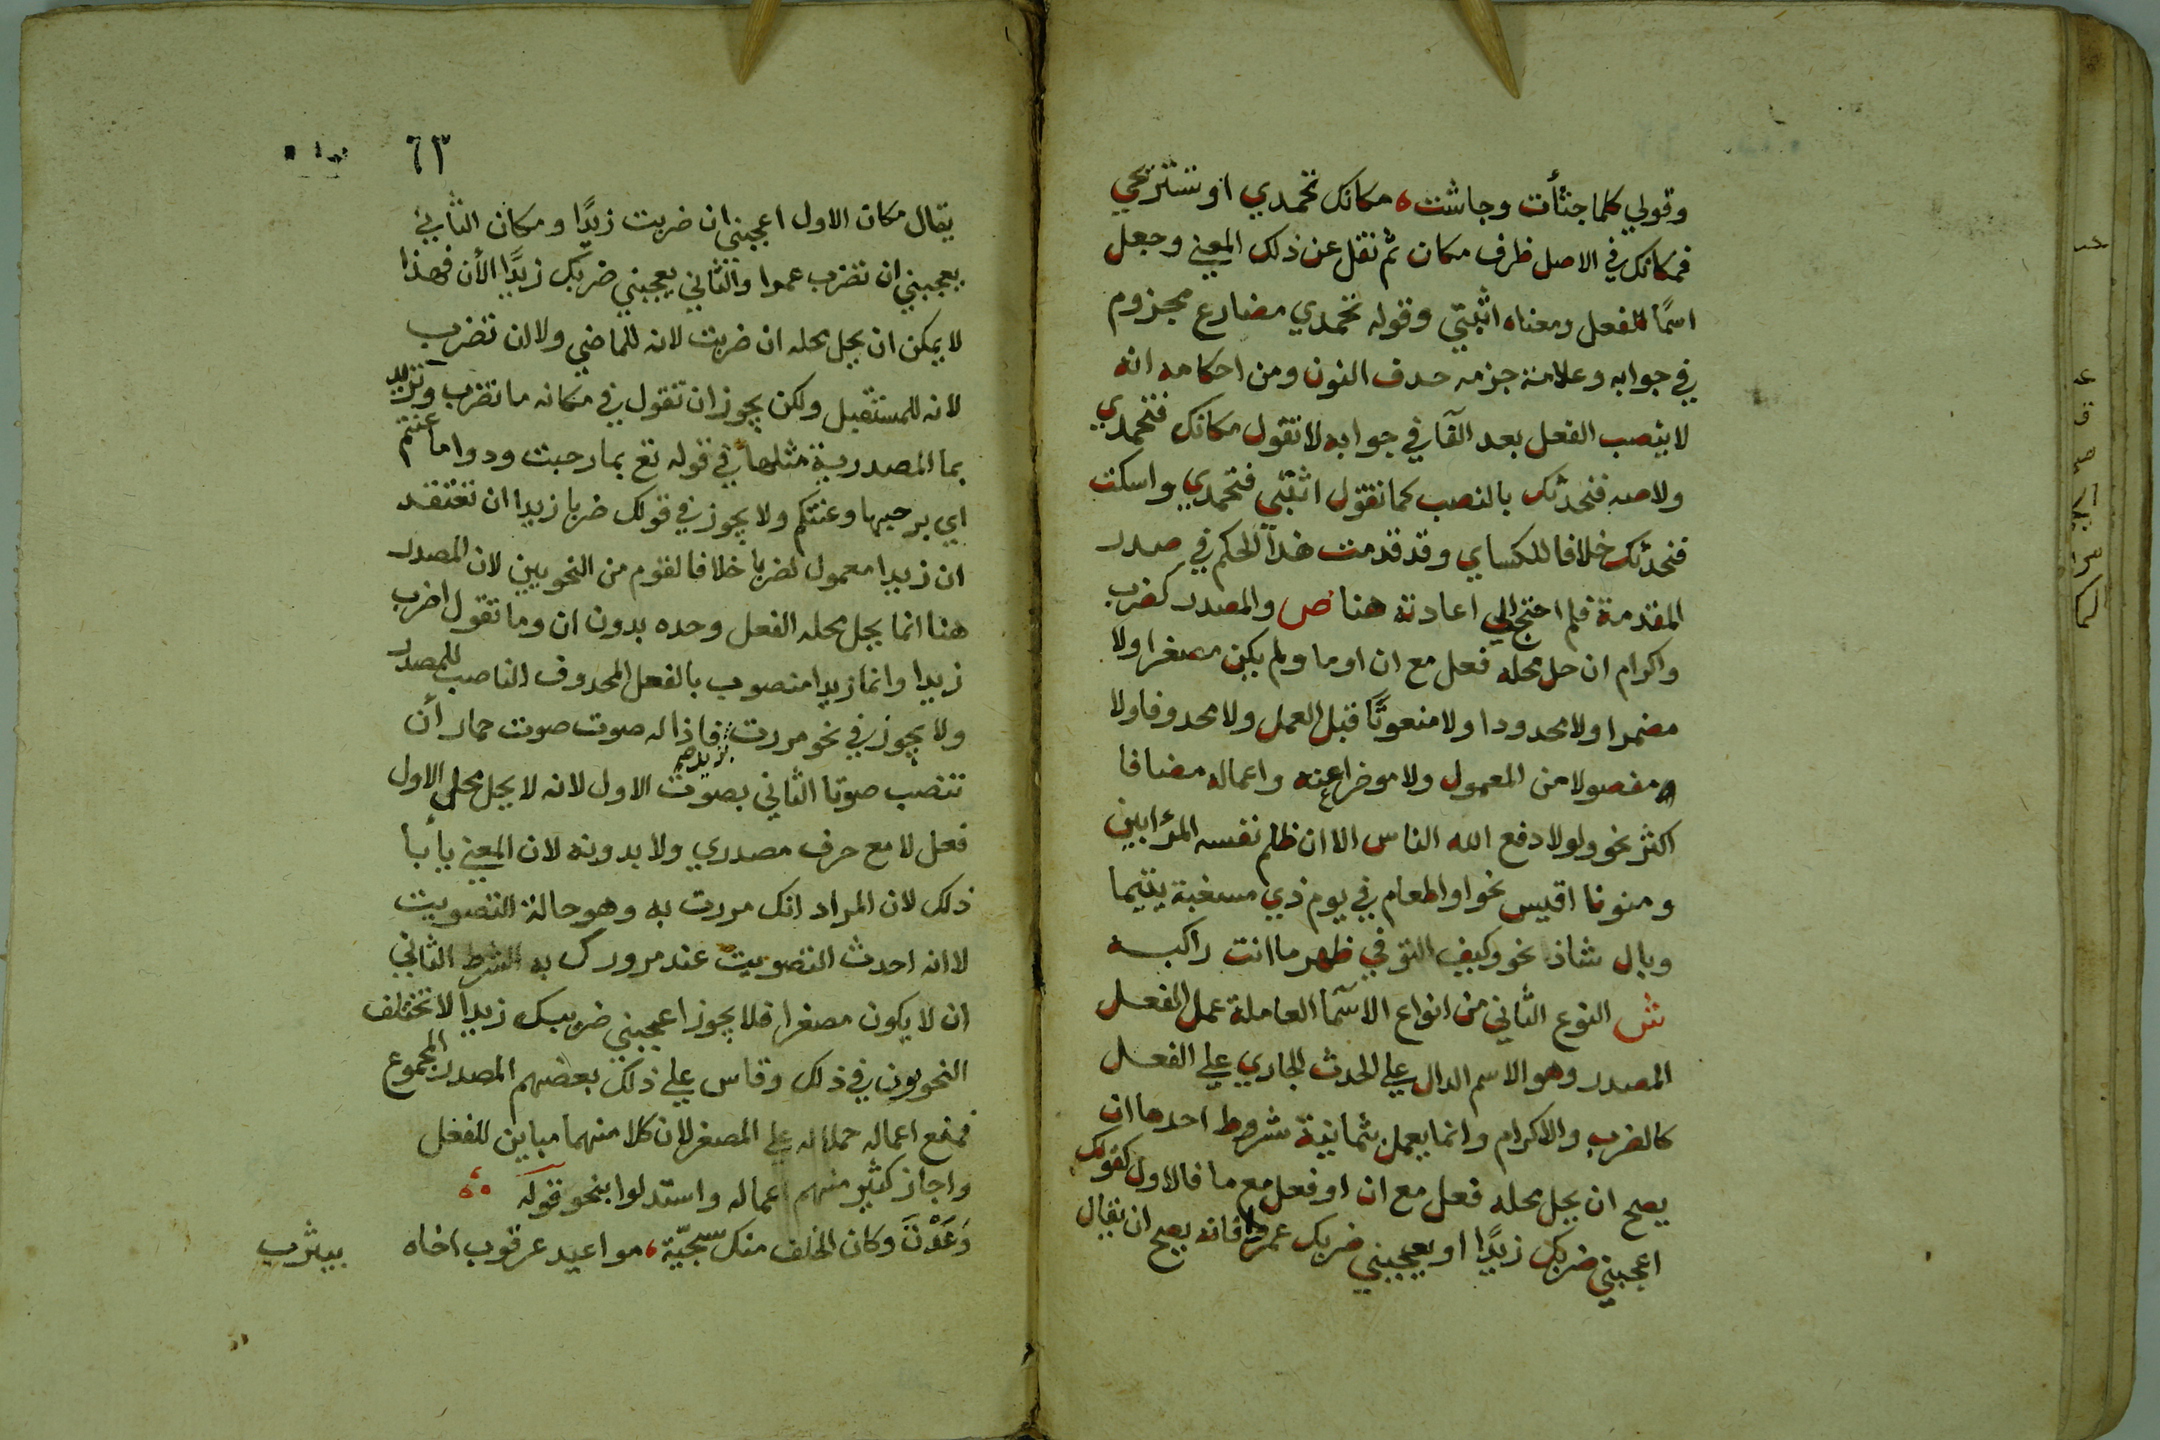 وقولي كلما جشأت وجاشت ه مكانك تحمدي او تستريحي
فمكانك في الاصل ظرف مكان ثم نقل عن ذلك المعني وجعل
اسمًا للفعل ومعناه اثبتي وقوله تحمدي مضارع مجزوم
في جوابه وعلامة جزمه حدف النون ومن احكامه انه
لا ينصب الفعل بعد الفآ في جوابه لا نقول مكانك فتحمدي
ولا صه فنحدثك بالنصب كما نقول اثبتي فتحمدي واسكت
فنحدثك خلافا للكساي وقد قدمت هذا الحكم في صدر
المقدمة فلم احتج الي اعادته هنا ص والمصدر كضرب
واكرام ان حل محله فعل مع ان او ما ولم يكن مصغرا ولا
مضمرا ولا محدودا ولا منعوتًا قبل العمل ولا محدوفا ولا
مفصولا من المعمول ولا موخرا عنه واعماله مضافا
اكثر نحو ولولا دفع الله الناس الا ان ظلم نفسه المرٔ ابين
ومنونا اقيس نحو او اطعام في يوم ذي مسغبة يتيما
وبال شاذ نحو وكيف التوفي ظهر ما انت راكبه
ش النوع الثاني من انواع الاسمآ العاملة عمل الفعل
المصدر وهو الاسم الدال علي الحدث الجاري علي الفعل
كالضرب والاكرام وانما يعمل بثمانية شروط احدها ان
يصح ان يحل محله فعل مع ان او فعل مع ما فالاول كقولك
اعجبني ضربك زيدًا او يعجبني ضربك عمرا فانه يصح ان يقال
٦٣
يقال مكان الاول اعجبني ان ضربت زيدًا ومكان الثاني
يعجبني ان تضرب عمرا والثاني يعجبني ضربك زيدًا الأن فهذا
لا يمكن ان يحل محله ان ضربت لانه للماضي ولا ان تضرب
لانه للمستقبل ولكن يجوز ان تقول في مكانه ما تضرب وتريد
بما المصدرية مثلها في قوله تع بما رحبت ودوا ما عنتم
اي برحبها وعنتكم ولا يجوز في قولك ضربا زيدا ان تعتقد
ان زيدا معمول لضربا خلافا لقوم من النحويين لان المصدر
هنا انما يحل محله الفعل وحده بدون ان وما تقول اضرب
زيدا وانما زيدا منصوب بالفعل المحدوف الناصب للمصدر
ولا يجوز في نحو مررت بزيد صح فاذا له صوت صوت حمار أن
تنصب صوتا الثاني بصوت الاول لانه لا يحل محل الاول
فعل لا مع حرف مصدري ولا بدونه لان المعني يأبا
ذلك لان المراد انك مررت به وهو حالة التصويت
لا انه احدث التصويت عند مرورك به الشرط الثاني
ان لا يكون مصغرا فلا يجوز اعجبني ضريبك زيدا لا تختلف
النحويون في ذلك وقاس علي ذلك بعضهم المصدر المجموع
فمنع اعماله حملا له علي المصغر لان كلا منهما مباين للفعل
واجاز كثير منهم اعماله واستدلوا بنحو قوله
وَعَدْتَ وكان الخلف منك سجيّة، مواعيد عرقوب اخاه
بيثرب